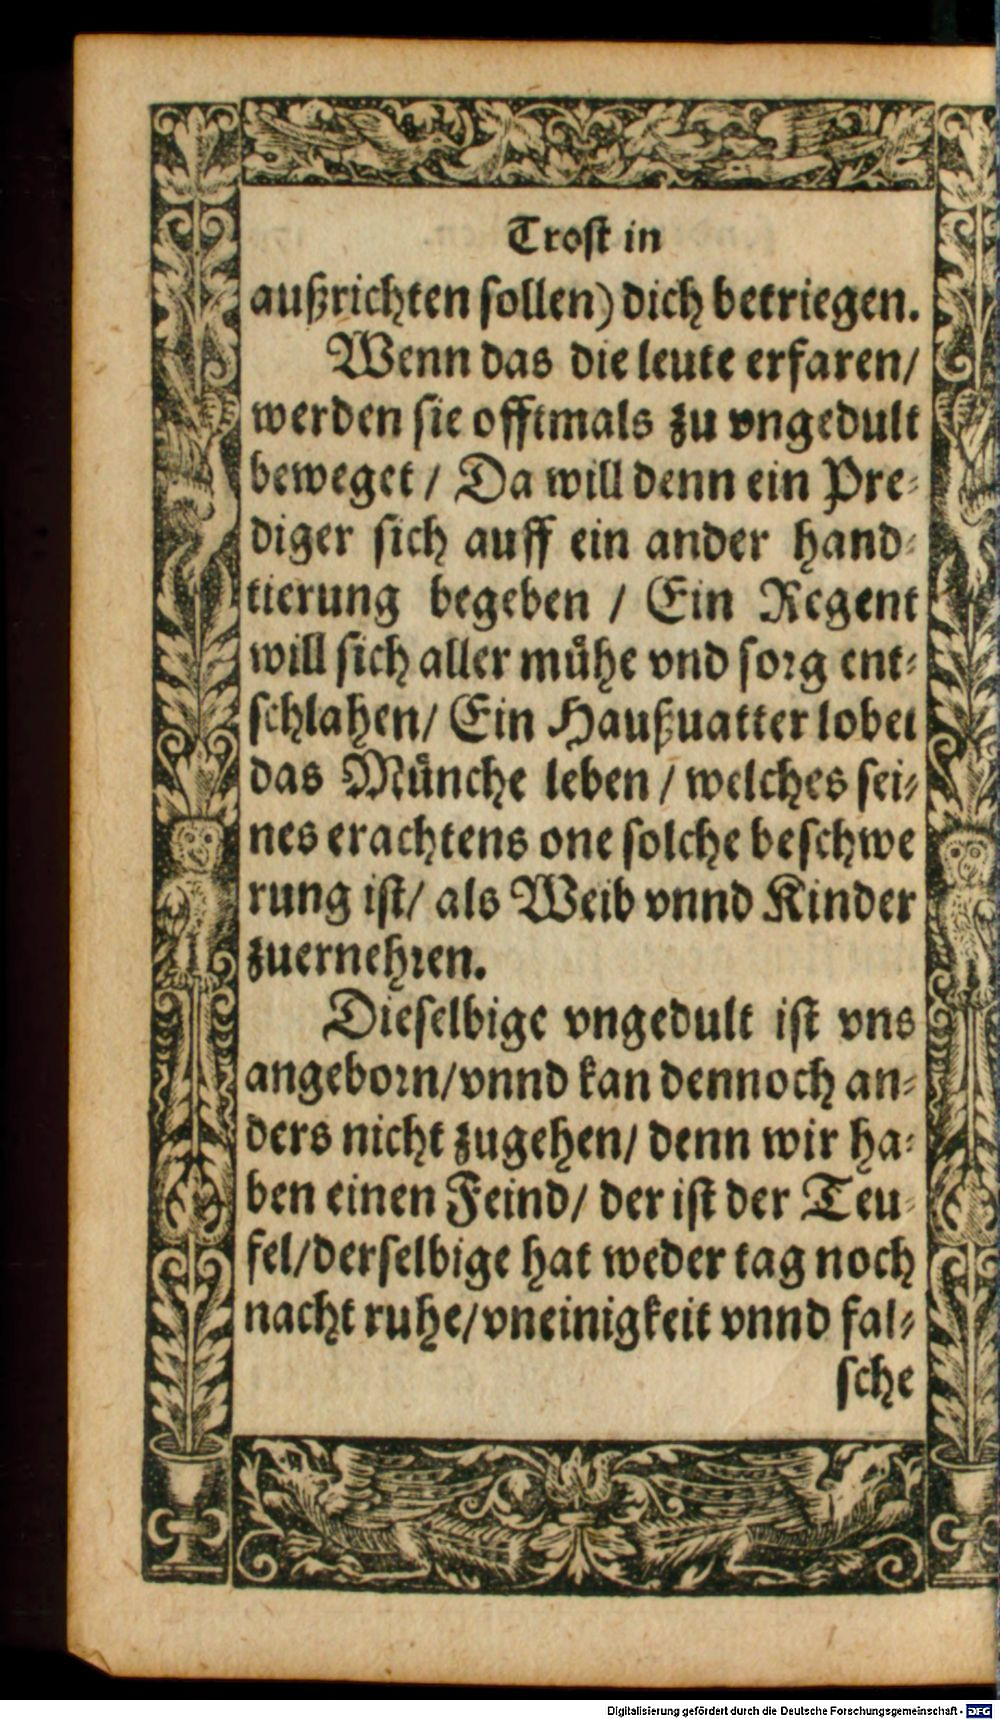 Trost in
außrichten sollen) dich betriegen.
Wenn das die leute erfaren/
werden sie offtmals zu vngedult
beweget / Da will denn ein Pre-
diger sich auff ein ander hand-
tierung begeben / Ein Regent
will sich aller mühe vnd sorg ent-
schlahen/ Ein Haußuatter lobet
das Münche leben / welches sei-
nes erachtens one solche beschwe
rung ist/ als Weib vnnd Kinder
zuernehren.
Dieselbige vngedult ist vns
angeborn/vnnd kan dennoch an-
ders nicht zugehen/ denn wir ha-
ben einen Feind/ der ist der Teu-
fel/derselbige hat weder tag noch
nacht ruhe/vneinigkeit vnnd fal-
sche
Digitalisierung gefördert durch die Deutsche Forschungsgemeinschaft - DFG